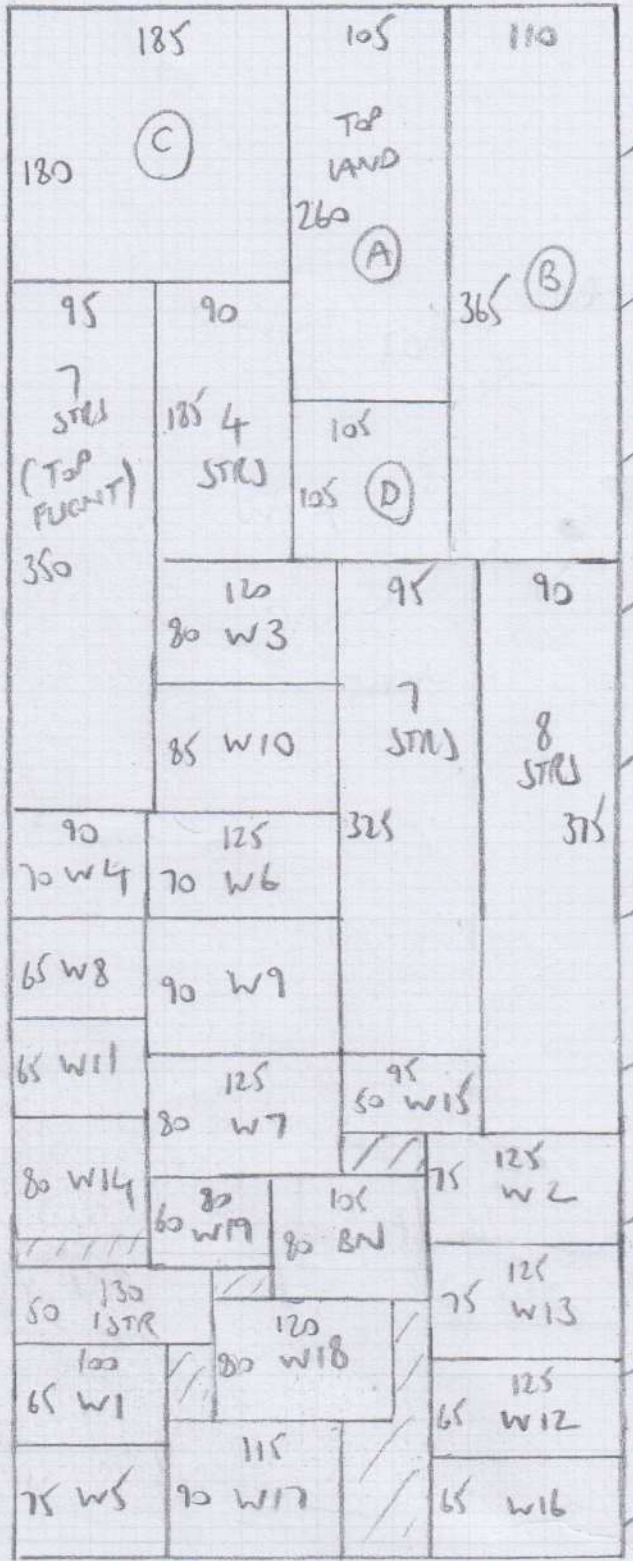 185
C
180
105
TOP
LAND
260
A
110
365 B
95
7
STRS
(TOP
FLIGHT)
350
90
185 4
STRS
105
105 D
120
80 W3
85 W10
95
7
STRS
325
90
8
STRS
375
90
70 W4
125
70 W6
65 W8
90 W9
65 W11
125
80 W7
95
50 W15
80 W14
80
60 W19
105
80 BN
125
75 W2
130
50 1STR
120
80 W18
125
75 W13
100
65 W1
125
65 W12
75 W5
115
90 W17
65 W16